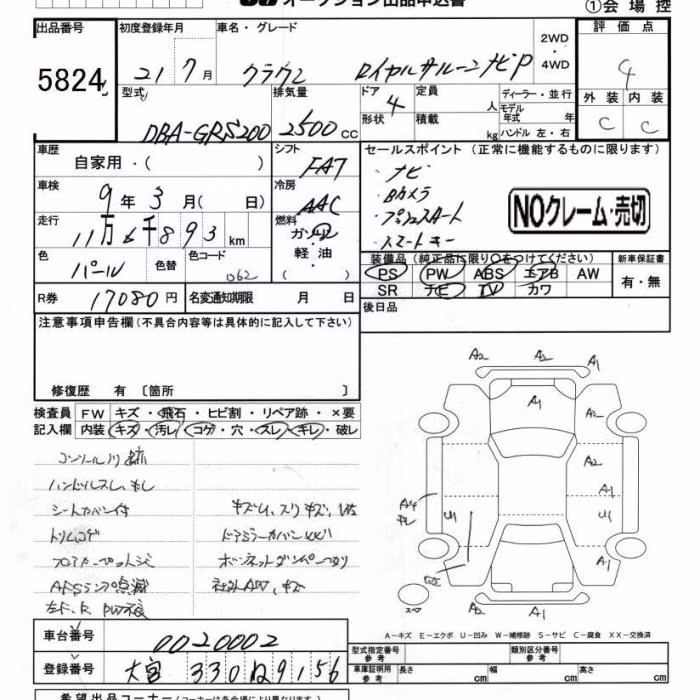 オークション出品申込書
①会場控
出品番号 初度登録年月 車名・グレード 評価点
5824 21 7月 クラウン ロイヤルサルーンナビP 2WD・4WD 4
型式 排気量 ドア 4 定員 人 ディーラー・並行 外装 内装
DBA-GRS200 2500cc 形状 積載 kg モデル年式 年 C C
ハンドル 左・右
車歴 自家用・( ) シフト FAT セールスポイント (正常に機能するものに限ります)
車検 9年3月( 日) 冷房 AAC ・ナビ
・Bカメラ
走行 11万6千893km 燃料 ガソリン・軽油・( ) ・プッシュスタート
・スマートキー
NOクレーム・売切
色 パール 色替 色コード 062 装備品(純正品に限り○をつけてください) 新車保証書
PS PW ABS エアB AW 有・無
SR ナビ TV カワ
R券 17080円 名変通知期限 月 日 後日品
注意事項申告欄(不具合内容等は具体的に記入して下さい)
修復歴 有 〔箇所 〕
検査員 FW キズ・飛石・ヒビ割・リペア跡・×要
記入欄 内装 キズ・汚レ・コゲ・穴・スレ・キレ・破レ
ハンドルスレ、
シートカバー付
トリムコゲ
ABSランプ点滅
左F、R PW不良
ドアミラーカバー
ボンネットダンパー
社外AW、キズ
A2 A2 A1
A1 A2
A2
A4 A1
U1 U1
A1
スペア A2 A1
A-キズ E-エクボ U-凹み W-補修跡 S-サビ C-腐食 XX-交換済
車台番号 0020002 型式指定番号 参考 類別区分番号 参考
登録番号 大宮 330 9156 車庫証明用 参考 長さ cm 幅 cm 高さ cm
希望出品コーナー